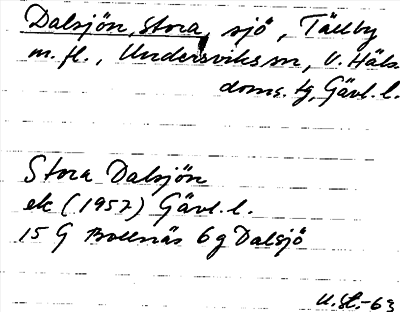 Dalsjön, Stora, sjö, Tällby
m.fl., Undersviks sn, V. Häls.
doms. tg, Gävl. l.
Stora Dalsjön
ek (1957) Gävl. l.
15 G Bollnäs 6 g Dalsjö
U. St. -63